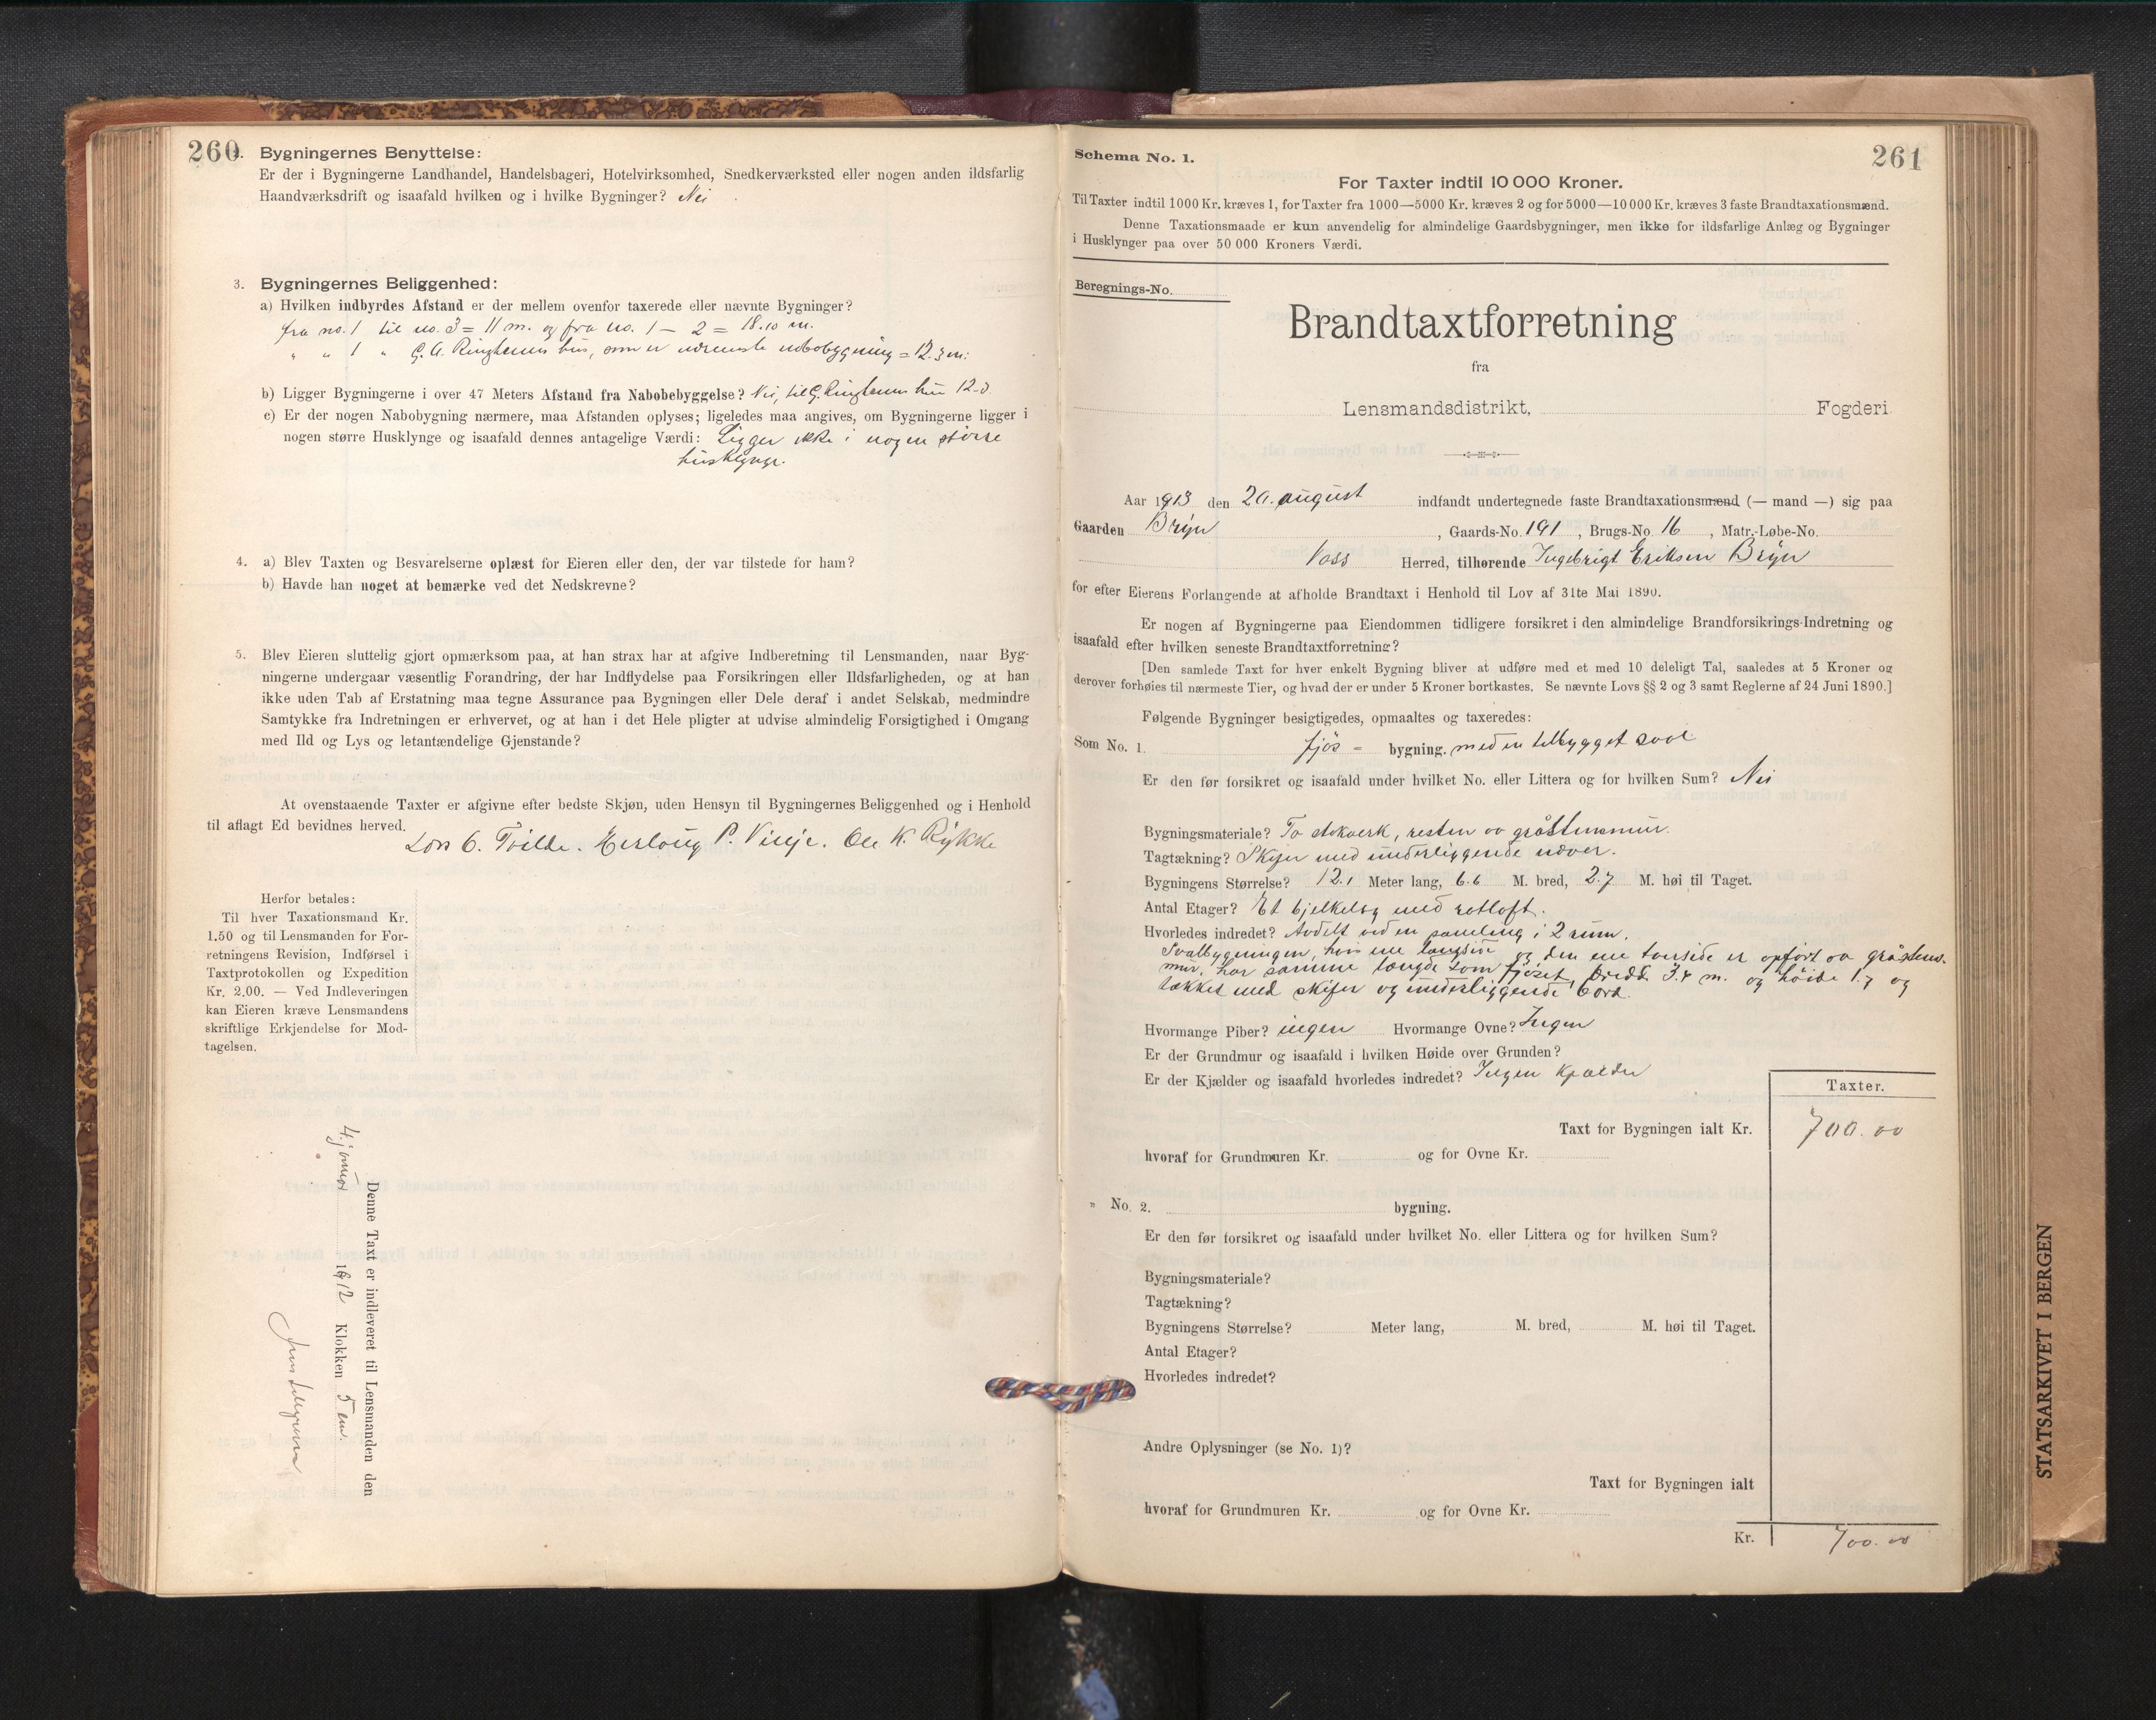 260
4. Bygningernes Benyttelse:
Er der i Bygningerne Landhandel, Handelsbageri, Hotelvirksomhed, Snedkerværksted eller nogen anden ildsfarlig
Haandværksdrift og isaafald hvilken og i hvilke Bygninger? Nei
3. Bygningernes Beliggenhed:
a) Hvilken indbyrdes Afstand er der mellem ovenfor taxerede eller nævnte Bygninger?
fra no. 1 til no. 3 = 11 m. og fra no. 1 — 2 = 18.10 m.
" " 1 " G. A. Ringheims hus, som er nærmeste nabobygning = 12.3 m.
b) Ligger Bygningerne i over 47 Meters Afstand fra Nabobebyggelse? Nei, til G. Ringheims hus 12.3
c) Er der nogen Nabobygning nærmere, maa Afstanden oplyses; ligeledes maa angives, om Bygningerne ligger i
nogen større Husklynge og isaafald dennes antagelige Værdi: Ligger ikke i nogen større
husklynge.
4. a) Blev Taxten og Besvarelserne oplæst for Eieren eller den, der var tilstede for ham?
b) Havde han noget at bemærke ved det Nedskrevne?
5. Blev Eieren sluttelig gjort opmærksom paa, at han strax har at afgive Indberetning til Lensmanden, naar Byg-
ningerne undergaar væsentlig Forandring, der har Indflydelse paa Forsikringen eller Ildsfarligheden, og at han
ikke uden Tab af Erstatning maa tegne Assurance paa Bygningen eller Dele deraf i andet Selskab, medmindre
Samtykke fra Indretningen er erhvervet, og at han i det Hele pligter at udvise almindelig Forsigtighed i Omgang
med Ild og Lys og letantændelige Gjenstande?
At ovenstaaende Taxter er afgivne efter bedste Skjøn, uden Hensyn til Bygningernes Beliggenhed og i Henhold
til aflagt Ed bevidnes herved.
Lars O. Tvilde. Herlaug P. Vinje. Ole K. Rykke
Herfor betales:
Til hver Taxationsmand Kr.
1.50 og til Lensmanden for For-
retningens Revision, Indførsel i
Taxtprotokollen og Expedition
Kr. 2.00. — Ved Indleveringen
kan Eieren kræve Lensmandens
skriftlige Erkjendelse for Mod-
tagelsen.
Denne Taxt er indleveret til Lensmanden den
4. januar 1912 Klokken 5 em.
261
Schema No. 1.
For Taxter indtil 10 000 Kroner.
Til Taxter indtil 1000 Kr. kræves 1, for Taxter fra 1000—5000 Kr. kræves 2 og for 5000—10 000 Kr. kræves 3 faste Brandtaxationsmænd.
Denne Taxationsmaade er kun anvendelig for almindelige Gaardsbygninger, men ikke for ildsfarlige Anlæg og Bygninger
i Husklynger paa over 50 000 Kroners Værdi.
Beregnings-No.
Brandtaxtforretning
fra
Lensmandsdistrikt, Fogderi
Aar 1913 den 20. august indfandt undertegnede faste Brandtaxationsmænd (— mand —) sig paa
Gaarden Bryn, Gaards-No. 191, Brugs-No. 16, Matr.-Løbe-No.
Voss Herred, tilhørende Ingebrigt Eriksen Bryn
for efter Eierens Forlangende at afholde Brandtaxt i Henhold til Lov af 31te Mai 1890.
Er nogen af Bygningerne paa Eiendommen tidligere forsikret i den almindelige Brandforsikrings-Indretning og
isaafald efter hvilken seneste Brandtaxtforretning?
[Den samlede Taxt for hver enkelt Bygning bliver at udføre med et med 10 deleligt Tal, saaledes at 5 Kroner og
derover forhøies til nærmeste Tier, og hvad der er under 5 Kroner bortkastes. Se nævnte Lovs §§ 2 og 3 samt Reglerne af 24 Juni 1890.]
Følgende Bygninger besigtigedes, opmaaltes og taxeredes:
Som No. 1. fjøs - bygning. med en tilbygget sval
Er den før forsikret og isaafald under hvilket No. eller Littera og for hvilken Sum? Nei
Bygningsmateriale? To stokverk, resten av gråstensmur.
Tagtækning? Skifer med underliggende næver.
Bygningens Størrelse? 12.1 Meter lang, 6.6 M. bred, 2.7 M. høi til Taget.
Antal Etager? Et bjelkelag med rotloft.
Hvorledes indredet? Avdelt ved en paneling i 2 rum.
Svalbygningen, hvis ene langside og den ene tverside er opført av gråstens-
mur, har samme længde som fjøset, bredde 3.4 m. og høide 1.7 og
tækket med skifer og underliggende bord.
Hvormange Piber? ingen Hvormange Ovne? Ingen
Er der Grundmur og isaafald i hvilken Høide over Grunden?
Er der Kjælder og isaafald hvorledes indredet? Ingen kjælder
Taxter.
Taxt for Bygningen ialt Kr. 700.00
hvoraf for Grundmuren Kr. og for Ovne Kr.
" No. 2. bygning.
Er den før forsikret og isaafald under hvilket No. eller Littera og for hvilken Sum?
Bygningsmateriale?
Tagtækning?
Bygningens Størrelse? Meter lang, M. bred, M. høi til Taget.
Antal Etager?
Hvorledes indredet?
Andre Oplysninger (se No. 1)?
Taxt for Bygningen ialt
hvoraf for Grundmuren Kr. og for Ovne Kr.
Kr. 700.00
STATSARKIVET I BERGEN